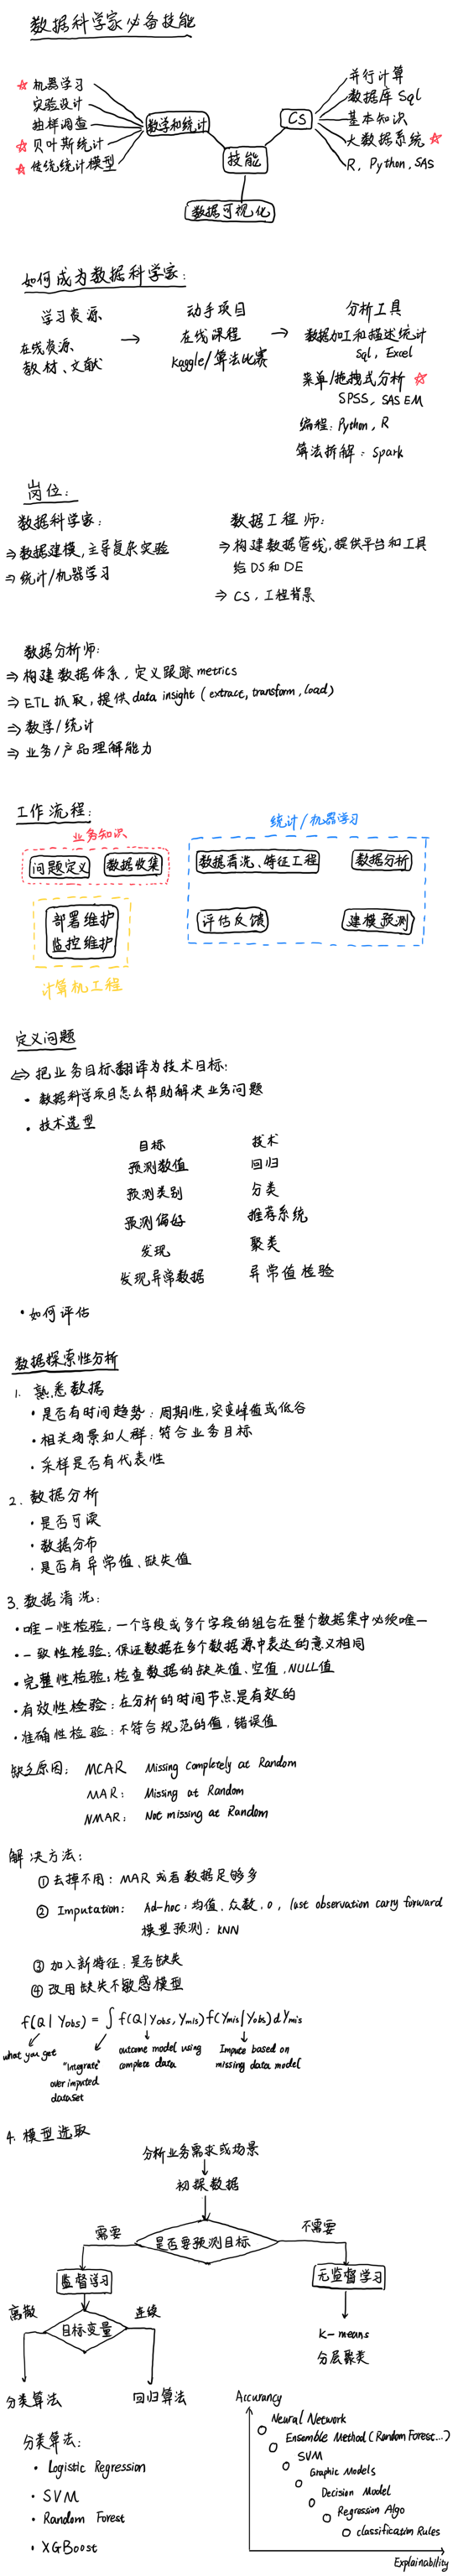 数据科学家必备技能
机器学习
实验设计
抽样调查
贝叶斯统计
传统统计模型
数学和统计
技能
CS
并行计算
数据库 Sql
基本知识
大数据系统
R, Python, SAS
数据可视化
如何成为数据科学家:
学习资源
在线资源、
教材、文献
→
动手项目
在线课程
Kaggle/算法比赛
→
分析工具
数据加工和描述统计
Sql, Excel
菜单/拖拽式分析
SPSS, SAS EM
编程: Python, R
算法拆解: Spark
岗位:
数据科学家:
⇒ 数据建模, 主导复杂实验
⇒ 统计/机器学习
数据工程师:
⇒ 构建数据管线, 提供平台和工具
给DS和DE
⇒ CS, 工程背景
数据分析师:
⇒ 构建数据体系, 定义跟踪 metrics
⇒ ETL 抓取, 提供 data insight (extrace, transform, load)
⇒ 数学/统计
⇒ 业务/产品理解能力
工作流程:
业务知识
问题定义 数据收集
统计/机器学习
数据清洗、特征工程 数据分析
评估反馈 建模预测
部署维护
监控维护
计算机工程
定义问题
⇔ 把业务目标翻译为技术目标:
• 数据科学项目怎么帮助解决业务问题
• 技术选型
目标 技术
预测数值 回归
预测类别 分类
预测偏好 推荐系统
发现 聚类
发现异常数据 异常值检验
• 如何评估
数据探索性分析
1. 熟悉数据
• 是否有时间趋势: 周期性, 突变峰值或低谷
• 相关场景和人群: 符合业务目标
• 采样是否有代表性
2. 数据分析
• 是否可读
• 数据分布
• 是否有异常值、缺失值
3. 数据清洗:
• 唯一性检验: 一个字段或多个字段的组合在整个数据集中必须唯一
• 一致性检验: 保证数据在多个数据源中表达的意义相同
• 完整性检验: 检查数据的缺失值、空值, NULL值
• 有效性检验: 在分析的时间节点是有效的
• 准确性检验: 不符合规范的值, 错误值
缺乏原因: MCAR Missing Completely at Random
MAR: Missing at Random
NMAR: Not missing at Random
解决方法:
① 去掉不用: MAR 或者数据足够多
② Imputation: Ad-hoc: 均值, 众数, 0, last observation carry forward
模型预测: KNN
③ 加入新特征: 是否缺失
④ 改用缺失不敏感模型
f(Q|Yobs) = ∫ f(Q|Yobs, Ymis) f(Ymis|Yobs) dYmis
what you get
"integrate"
over imputed
dataset
outcome model using
complete data
Impute based on
missing data model
4. 模型选取
分析业务需求或场景
初探数据
是否要预测目标
需要
不需要
监督学习
无监督学习
离散
目标变量
连续
K-means
分层聚类
分类算法
回归算法
分类算法:
• Logistic Regression
• SVM
• Random Forest
• XGBoost
Accurancy
Neural Network
Ensemble Method (Random Forest...)
SVM
Graphic Models
Decision Model
Regression Algo
classification Rules
Explainability